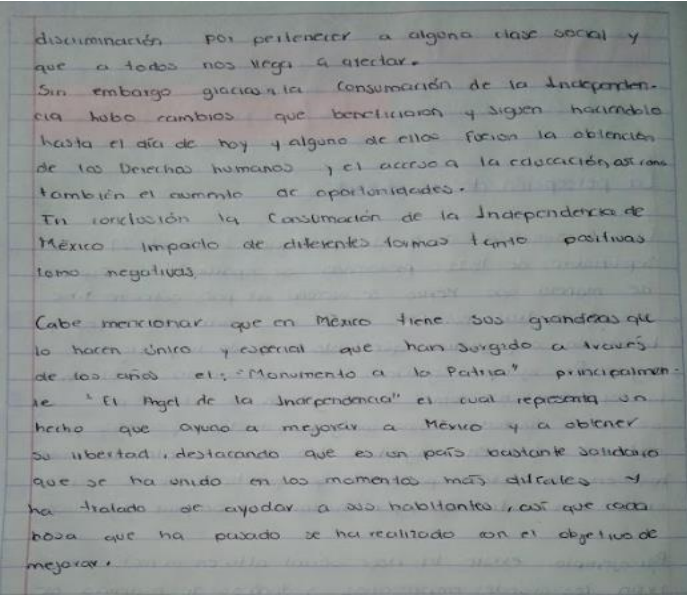 discriminación por pertenecer a alguna clase social y
que a todos nos llega a afectar.
Sin embargo gracias a la Consumación de la Independen-
cia hubo cambios que beneficiaron y siguen haciendolo
hasta el día de hoy y alguno de ellos fueron la obtención
de los Derechos humanos, y el acceso a la educación, asi como
también el aumento de oportunidades.
En conclusión la Consumación de la Independencia de
México impacto de diferentes formas tanto positivas
como negativas.
Cabe mencionar que en México tiene sus grandezas que
lo hacen único y especial que han surgido a través
de los años el; "Monumento a la Patria" principalmen-
te "El Angel de la Independencia" el cual representa un
hecho que ayudo a mejorar a México y a obtener
su libertad, destacando que es un país bastante solidario
que se ha unido en los momentos más dificiles y
ha tratado de ayudar a sus habitantes, así que cada
que ha pasado se ha realizado con el objetivo de
mejorar.